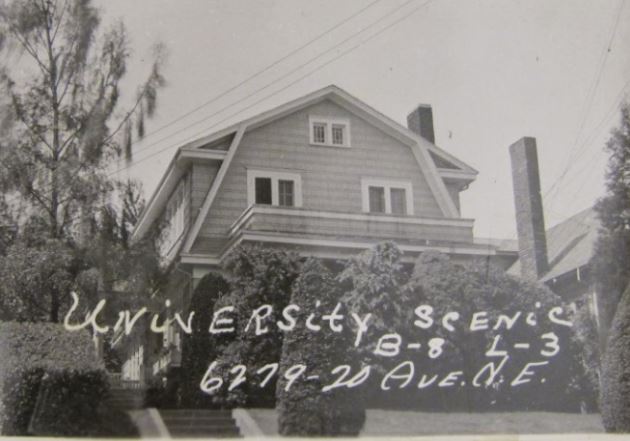 UNiVERSity SCENiC
B-8 L-3
6279-20 AVE. N.E.